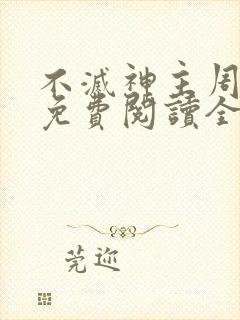 不滅神主周
免費閱讀全
莞迩